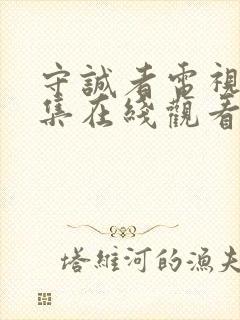 守誠者電視
集在綫觀看
塔維河的漁夫